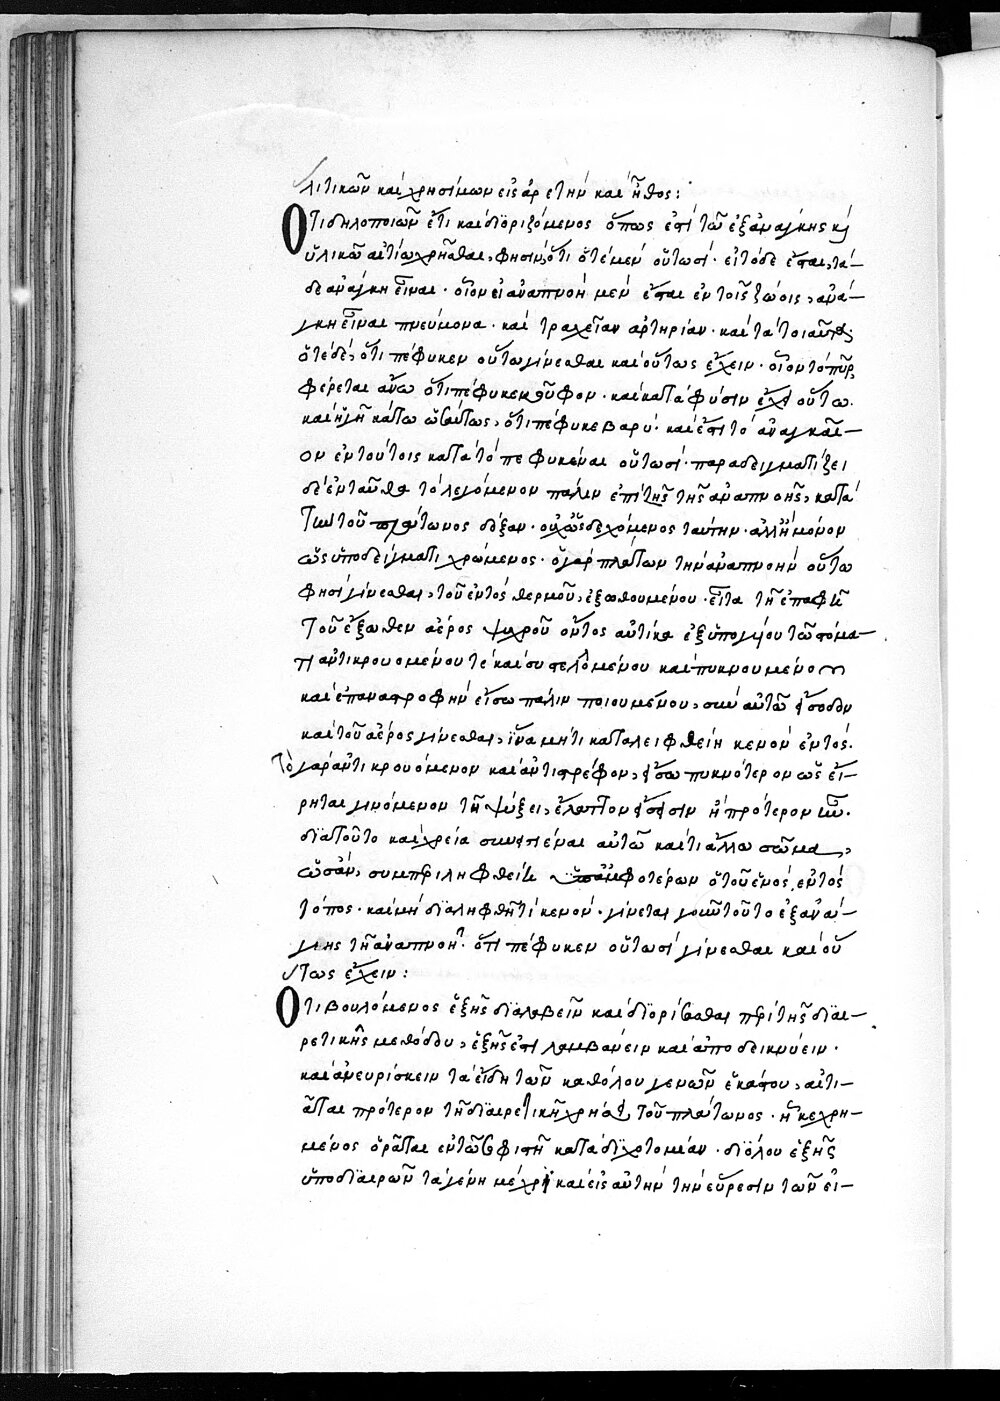 λιτικῶν καὶ χρησίμων εἰς ἀρετὴν καὶ ἦθος:
Ὅτι δηλοποιῶν ἔτι καὶ διοριζόμενος ὅπως ἐπὶ τῶ ἐξ ἀνάγκης καὶ
ὑλικῶ αἰτίω χρῆσθαι, φησὶν, ὅτι ὁτὲ μὲν οὕτωσί· εἰ τόδε ἔσται, τά-
δε ἀνάγκη εἶναι· οἷον εἰ ἀναπνοὴ μὲν ἔσται ἐν τοῖς ζώοις, ἀνά-
γκη εἶναι πνεύμονα· καὶ τραχεῖαν ἀρτηρίαν· καὶ τὰ τοιαῦτα·
ὁτὲ δὲ, ὅτι πέφυκεν οὕτω γίνεσθαι καὶ οὕτως ἔχειν· οἷον τὸ πῦρ
φέρεται ἄνω ὅτι πέφυκε κοῦφον· καὶ κατὰ φύσιν ἔχει οὕτω.
καὶ ἡ γῆ κάτω ὡσαύτως, ὅτι πέφυκε βαρύ· καὶ ἔστι τὸ ἀναγκαῖ-
ον ἐν τούτοις κατὰ τὸ πεφυκέναι οὕτωσί· παραδειγματίζει
δὲ ἐνταῦθα τὸ λεγόμενον πάλιν ἐπὶ τῆς τῆς ἀναπνοῆς, κατὰ
τὴν τοῦ πλάτωνος δόξαν· οὐχ ὡς δεχόμενος ταύτην· ἀλλ' ἢ μόνον
ὡς ὑποδείγματι χρώμενος· ὁ γὰρ πλάτων τὴν ἀναπνοὴν οὕτω
φησὶ γίνεσθαι, τοῦ ἐντὸς θερμοῦ, ἐξωθουμένου· εἶτα τῆ ἐπαφῆ
τοῦ ἔξωθεν ἀέρος ψυχροῦ ὄντος αὐτίκα ἐξ ὑπογύου τῶ στόμα-
τι ἀντικρουομένου τὲ καὶ συστελλομένου καὶ πυκνουμένου
καὶ ἐπαναστροφὴν εἴσω πάλιν ποιουμένου, σὺν αὐτῶ εἴσοδον
καὶ τοῦ ἀέρος γίνεσθαι, ἵνα μή τι καταλειφθείη κενὸν ἐντός.
Τὸ γὰρ ἀντικρουόμενον καὶ ἀντιστρέφον, εἴσω πυκνότερον ὡς εἴ-
ρηται γινόμενον τῆ ψύξει, ἔλαττον εἴσεισιν ἢ πρότερον ἦν·
διατοῦτο καὶ χρεία συνεισιέναι αὐτῶ καί τι ἄλλο σῶμα,
ὡς ἂν, συμπεριληφθείη ἀμφοτέρων ὁ τοῦ ἑνὸς ἐντὸς
τόπος· καὶ μὴ διαληφθῆ τι κενόν· γίνεται γοῦν τοῦτο ἐξ ἀνά-
γκης τῆ ἀναπνοῆ· ὅτι πέφυκεν οὕτωσὶ γίνεσθαι καὶ οὕ
τως ἔχειν:
Ὅτι βουλόμενος ἑξῆς διαλαβεῖν καὶ διορίσασθαι περὶ τῆς διαι-
ρετικῆς μεθόδου, ἑξῆς ἐπιλαμβάνειν καὶ ἀποδεικνύειν·
καὶ ἀνευρίσκειν τὰ εἴδη τῶν καθόλου γενῶν ἑκάστου, αἰτι-
ᾶται πρότερον τῆ διαιρετικῆ χρῆσθαι τοῦ πλάτωνος· ἧ κεχρη-
μένος ὁρᾶται ἐν τῶ σοφιστῆ κατὰ διχοτομίαν· διόλου ἑξῆς
ὑποδιαιρῶν τὰ γένη μέχρι καὶ εἰς αὐτὴν τὴν εὕρεσιν τῶν εἰ-